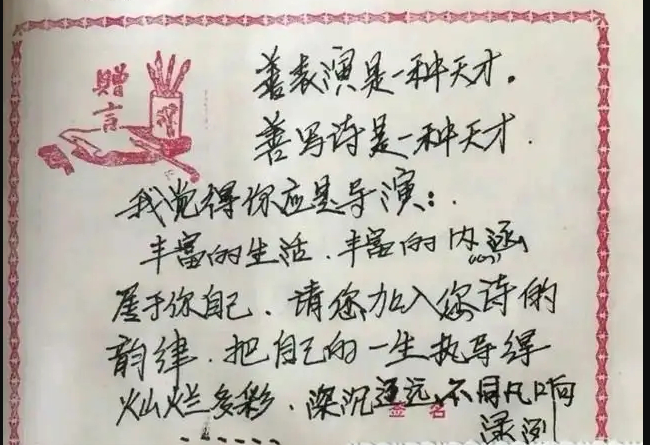 赠言
善表演是一种天才。
善写诗是一种天才.
我觉得你应是导演：.
丰富的生活、丰富的内涵
属于你自己、请您加入您诗的
韵律、把自己的一生执导得
灿烂多彩、深沉遥远、不同凡响
签名